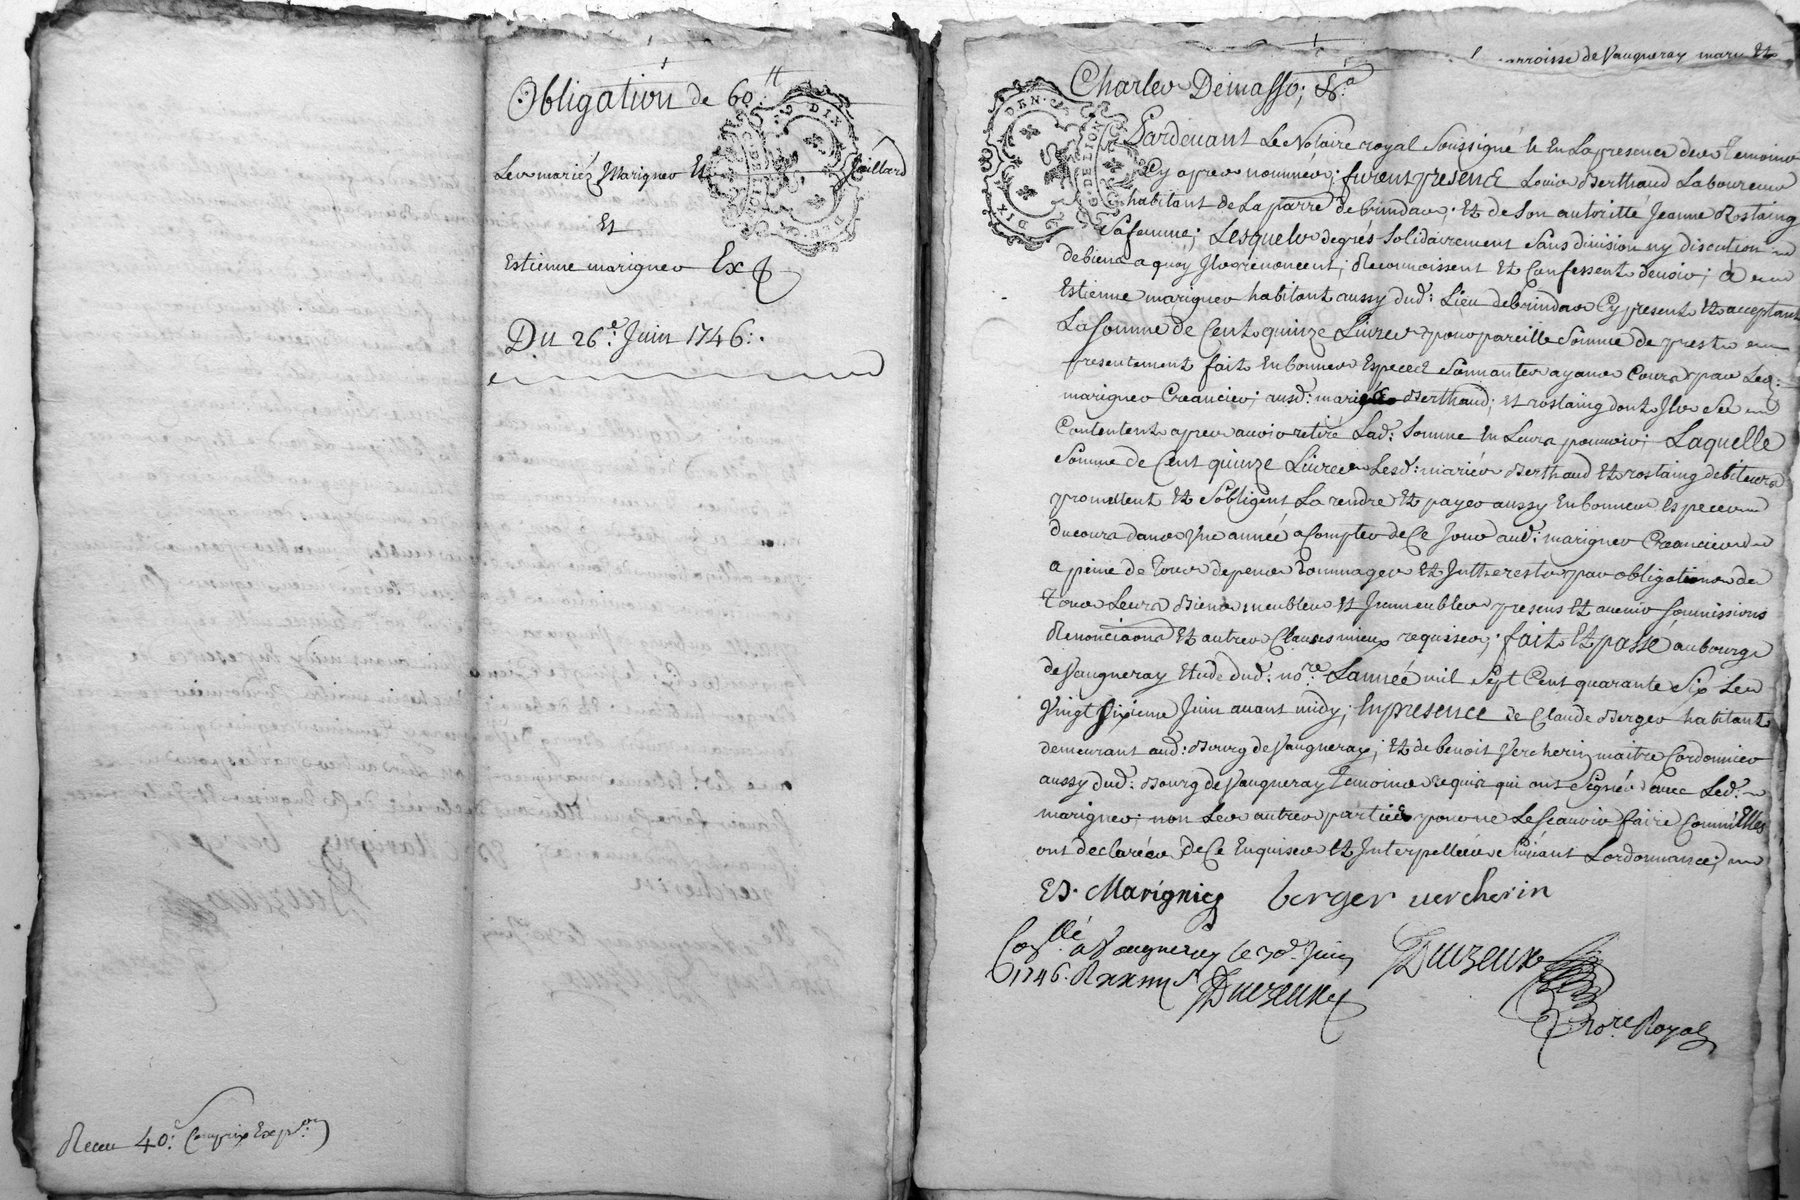 Obligation de 60.tt
Les mariéz Marignier Et Gaillard
Et
Estienne marignier Ex
Du 26.e Juin 1746:.
Receu 40.s Compris Exp.on
parroisse de Vaugneray
Charles Demasso; &.a
Pardeuant Le Notaire royal Soussigné & En La presence des temoins
Cy apres nommés; furent presens Louis Berthaud Laboureur
habitant de La parr.e de brindas; Et de Son autoritté Jeanne Rostaing
Sa femme; Lesquels de grés Solidairement Sans division ny discution
de biens a quoy Ils rénoncent; Reconnoissent Et Confessent devoir; à
Estienne marignier habitant aussy dud: Lieu de brindas Cy present Et acceptant
La Somme de Cent quinze Livres pour pareille Somme de prest
presentement fait En bonnes Especes Sonnantes ayans Cours par Led:
marignier Creancier; ausd: mariés Berthaud; et rostaing dont Ils Se
Contentent apres auoir retiré Lad: Somme En Leurs pouuoir; Laquelle
Somme de Cent quinze Livres Lesd: mariés Berthaud Et rostaing debiteurs
promettent Et S'obligent La rendre Et payer aussy En bonnes Especes
du cours dans Vne année a Compter de Ce Jour aud: marignier Creancier
a peine de tous depens dommages Et Inthérests par obligations de
tous Leurs Biens meubles Et Immeubles presens Et auenir Soumissions
Renonciaons Et autres Clauses mieux requises; fait Et passé au bourg
de Vaugneray Etude dud: no.re L'année mil Sept Cent quarante Six Le
Vingt Sixieme Juin auant midy; En presence de Claude Berger habitant
demeurant aud: Bourg de Vaugneray; Et de benoit Vercherin maitre Cordonnier
aussy dud: Bourg de Vaugneray temoins requis qui ont Signés auec Led:
marignier; non Les autres parties pour ne Le Scauoir faire Comm'Elles
ont declarées de Ce Enquises Et Interpellées Suiuant L'ordonnance;
ED. Marignier berger vercherin
Con.llé a Vaugneray le 30.e Juin
1746. R